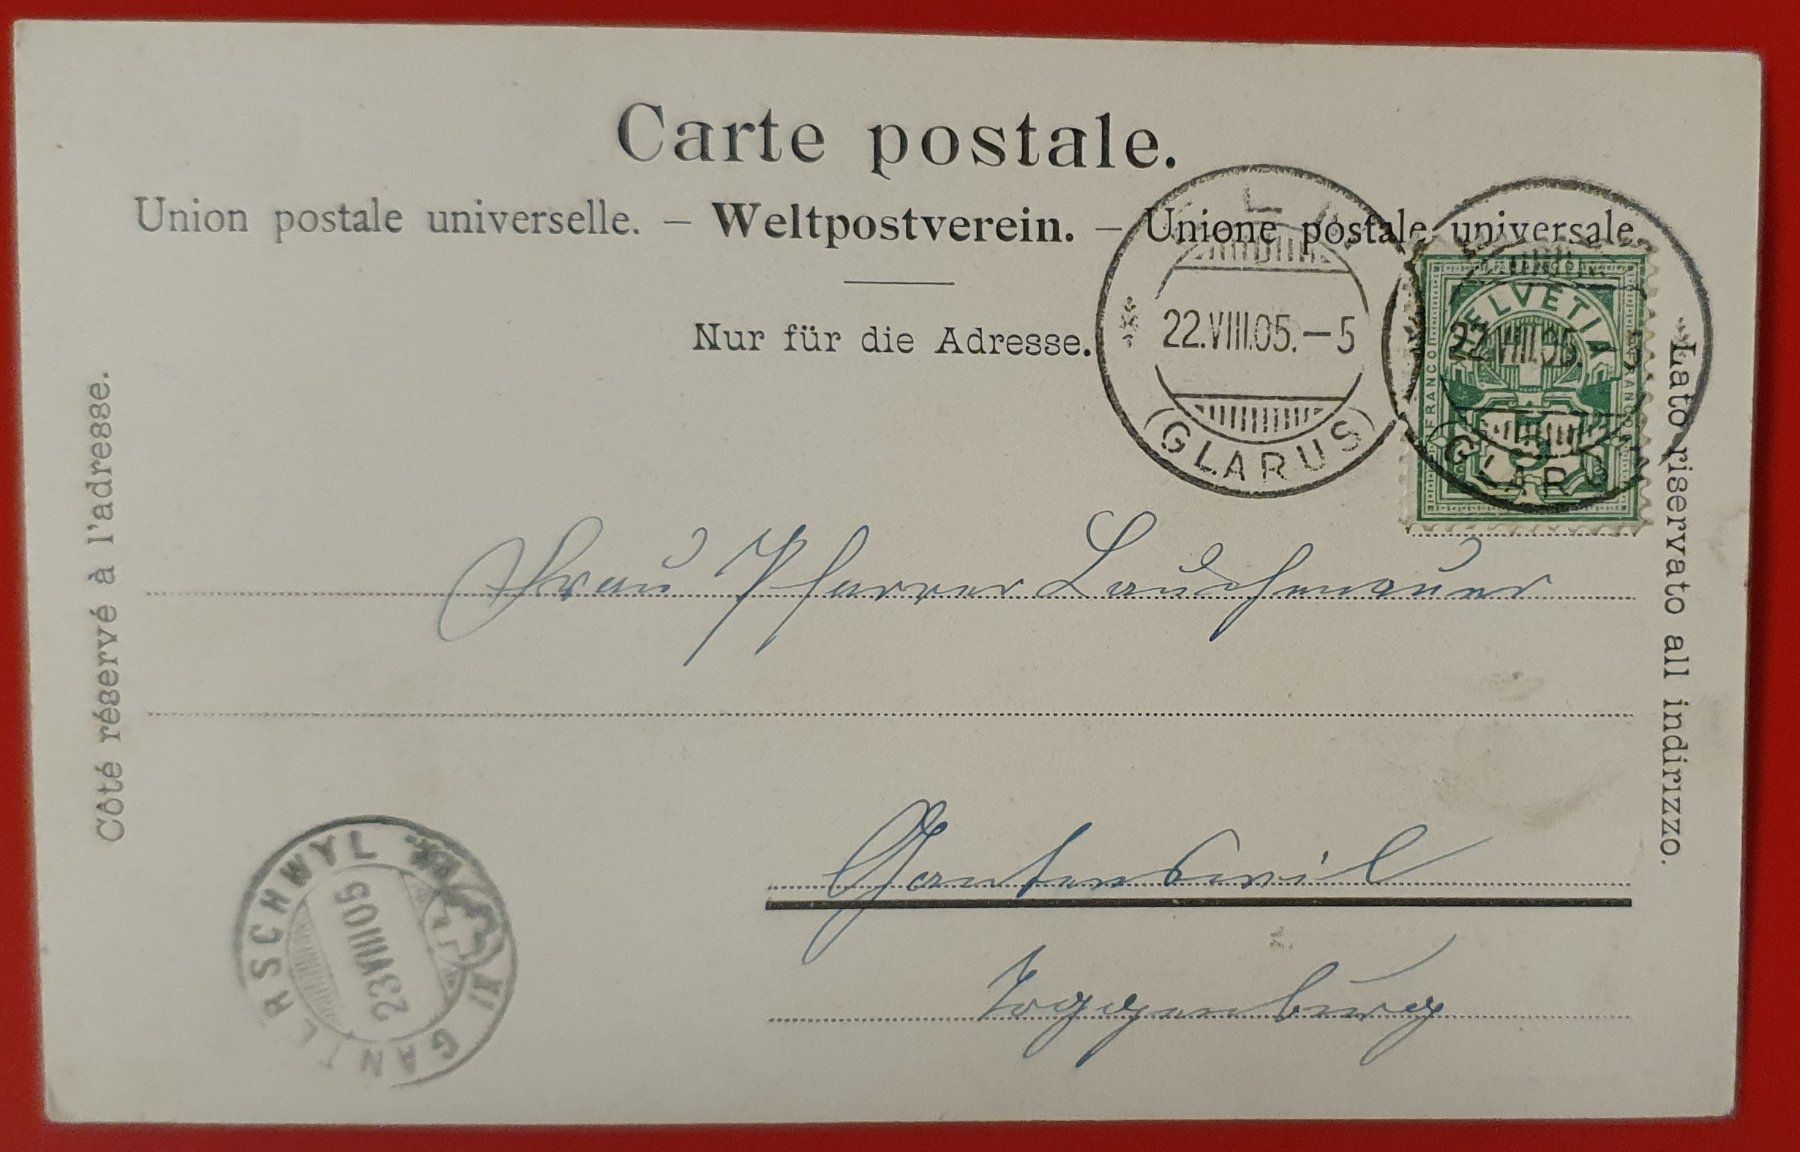 Carte postale.
Union postale universelle. – Weltpostverein. – Unione postale universale.
Nur für die Adresse.
Côté réservé à l'adresse.
Lato riservato all indirizzo.
22.VIII.05.–5
(GLARUS)
HELVETIA
FRANCO
FRANCO
5
22.VIII.05. 5
(GLARUS
Frau Pfarrer Lauchenauer
Gantenswil
Toggenburg
GANTERSCHWYL
23 VIII 05